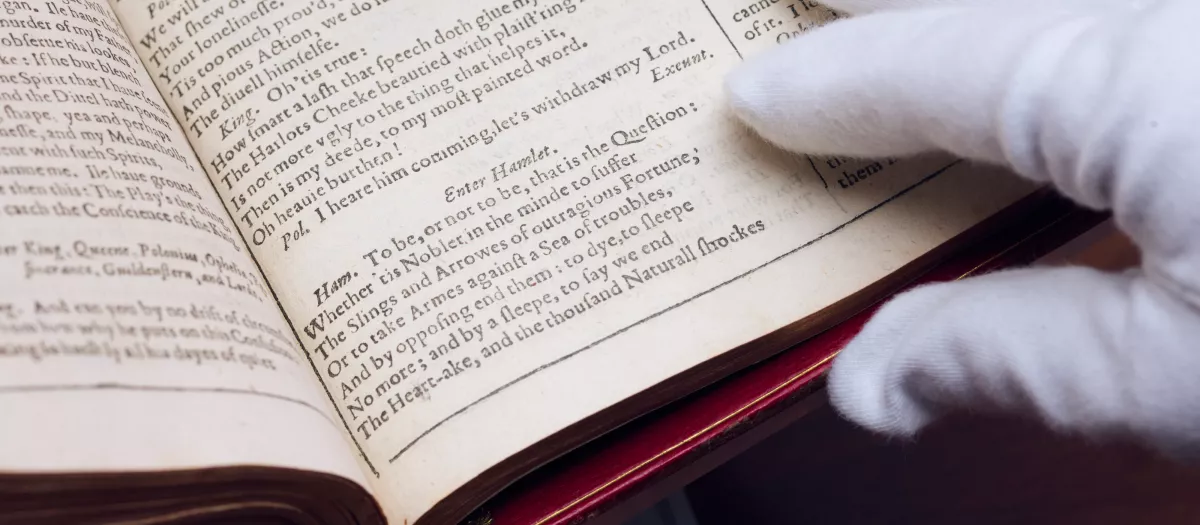 gan. Ile haue th
urder of my Father
obserue his lookes
ke: If he but blench
ne Spirit that I haue
nd the Diuel hath power
shape, yea and perhaps
nesse, and my Melancholly
ent with such Spirits,
amne me. Ile haue grounds
e then this: The Play's the thing
catch the Conscience of the King
er King, Queene, Polonius, Ophelia,
sincrance, Guildenstern, and Lords.
ng. And can you by no drift of
Pol
We will
That shew o
Your lonelinesse.
'Tis too much prou'd,
And pious Action, we do
The diuell himselfe.
King. Oh 'tis true:
How smart a lash that speech doth giue my
The Harlots Cheeke beautied with plaist'ring
Is not more vgly to the thing that helpes it,
Then is my deede, to my most painted word.
Oh heauie burthen!
Pol. I heare him comming, let's withdraw my Lord.
Exeunt.
Enter Hamlet.
Ham. To be, or not to be, that is the Question:
Whether 'tis Nobler in the minde to suffer
The Slings and Arrowes of outragious Fortune,
Or to take Armes against a Sea of troubles,
And by opposing end them: to dye, to sleepe
No more; and by a sleepe, to say we end
The Heart-ake, and the thousand Naturall shockes
cann
of it. I
them